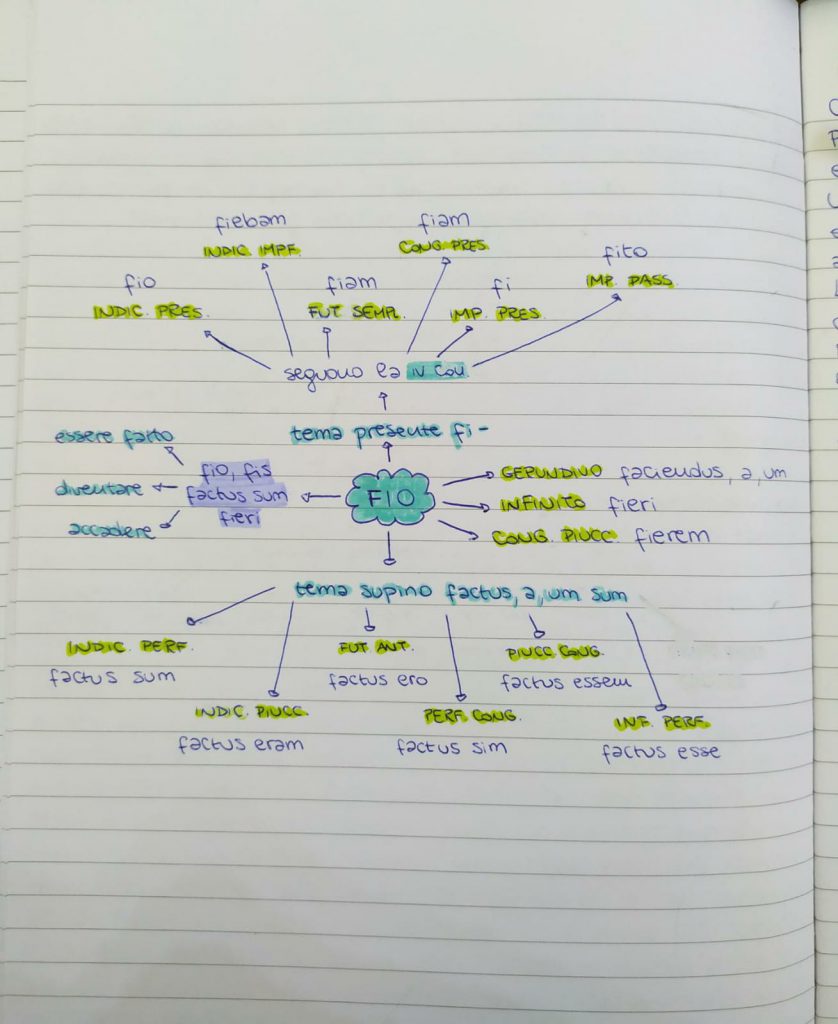 fiebam
INDIC. IMPF.
fiam
CONG. PRES.
fito
IMP. PASS.
fio
INDIC. PRES.
fiam
FUT SEMPL.
fi
IMP. PRES
seguono la IV CON.
tema presente fi-
essere fatto
diventare
accadere
fio, fis
factus sum
fieri
FIO
GERUNDIVO faciendus, a, um
INFINITO fieri
CONG. PIUCC. fierem
tema supino factus, a, um sum
INDIC. PERF.
factus sum
FUT ANT.
factus ero
PIUCC CONG.
factus essem
INDIC. PIUCC.
factus eram
PERF. CONG.
factus sim
INF. PERF.
factus esse